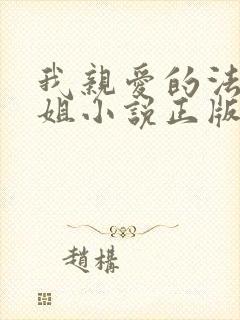 我親愛的法
姐小說正版
趙構